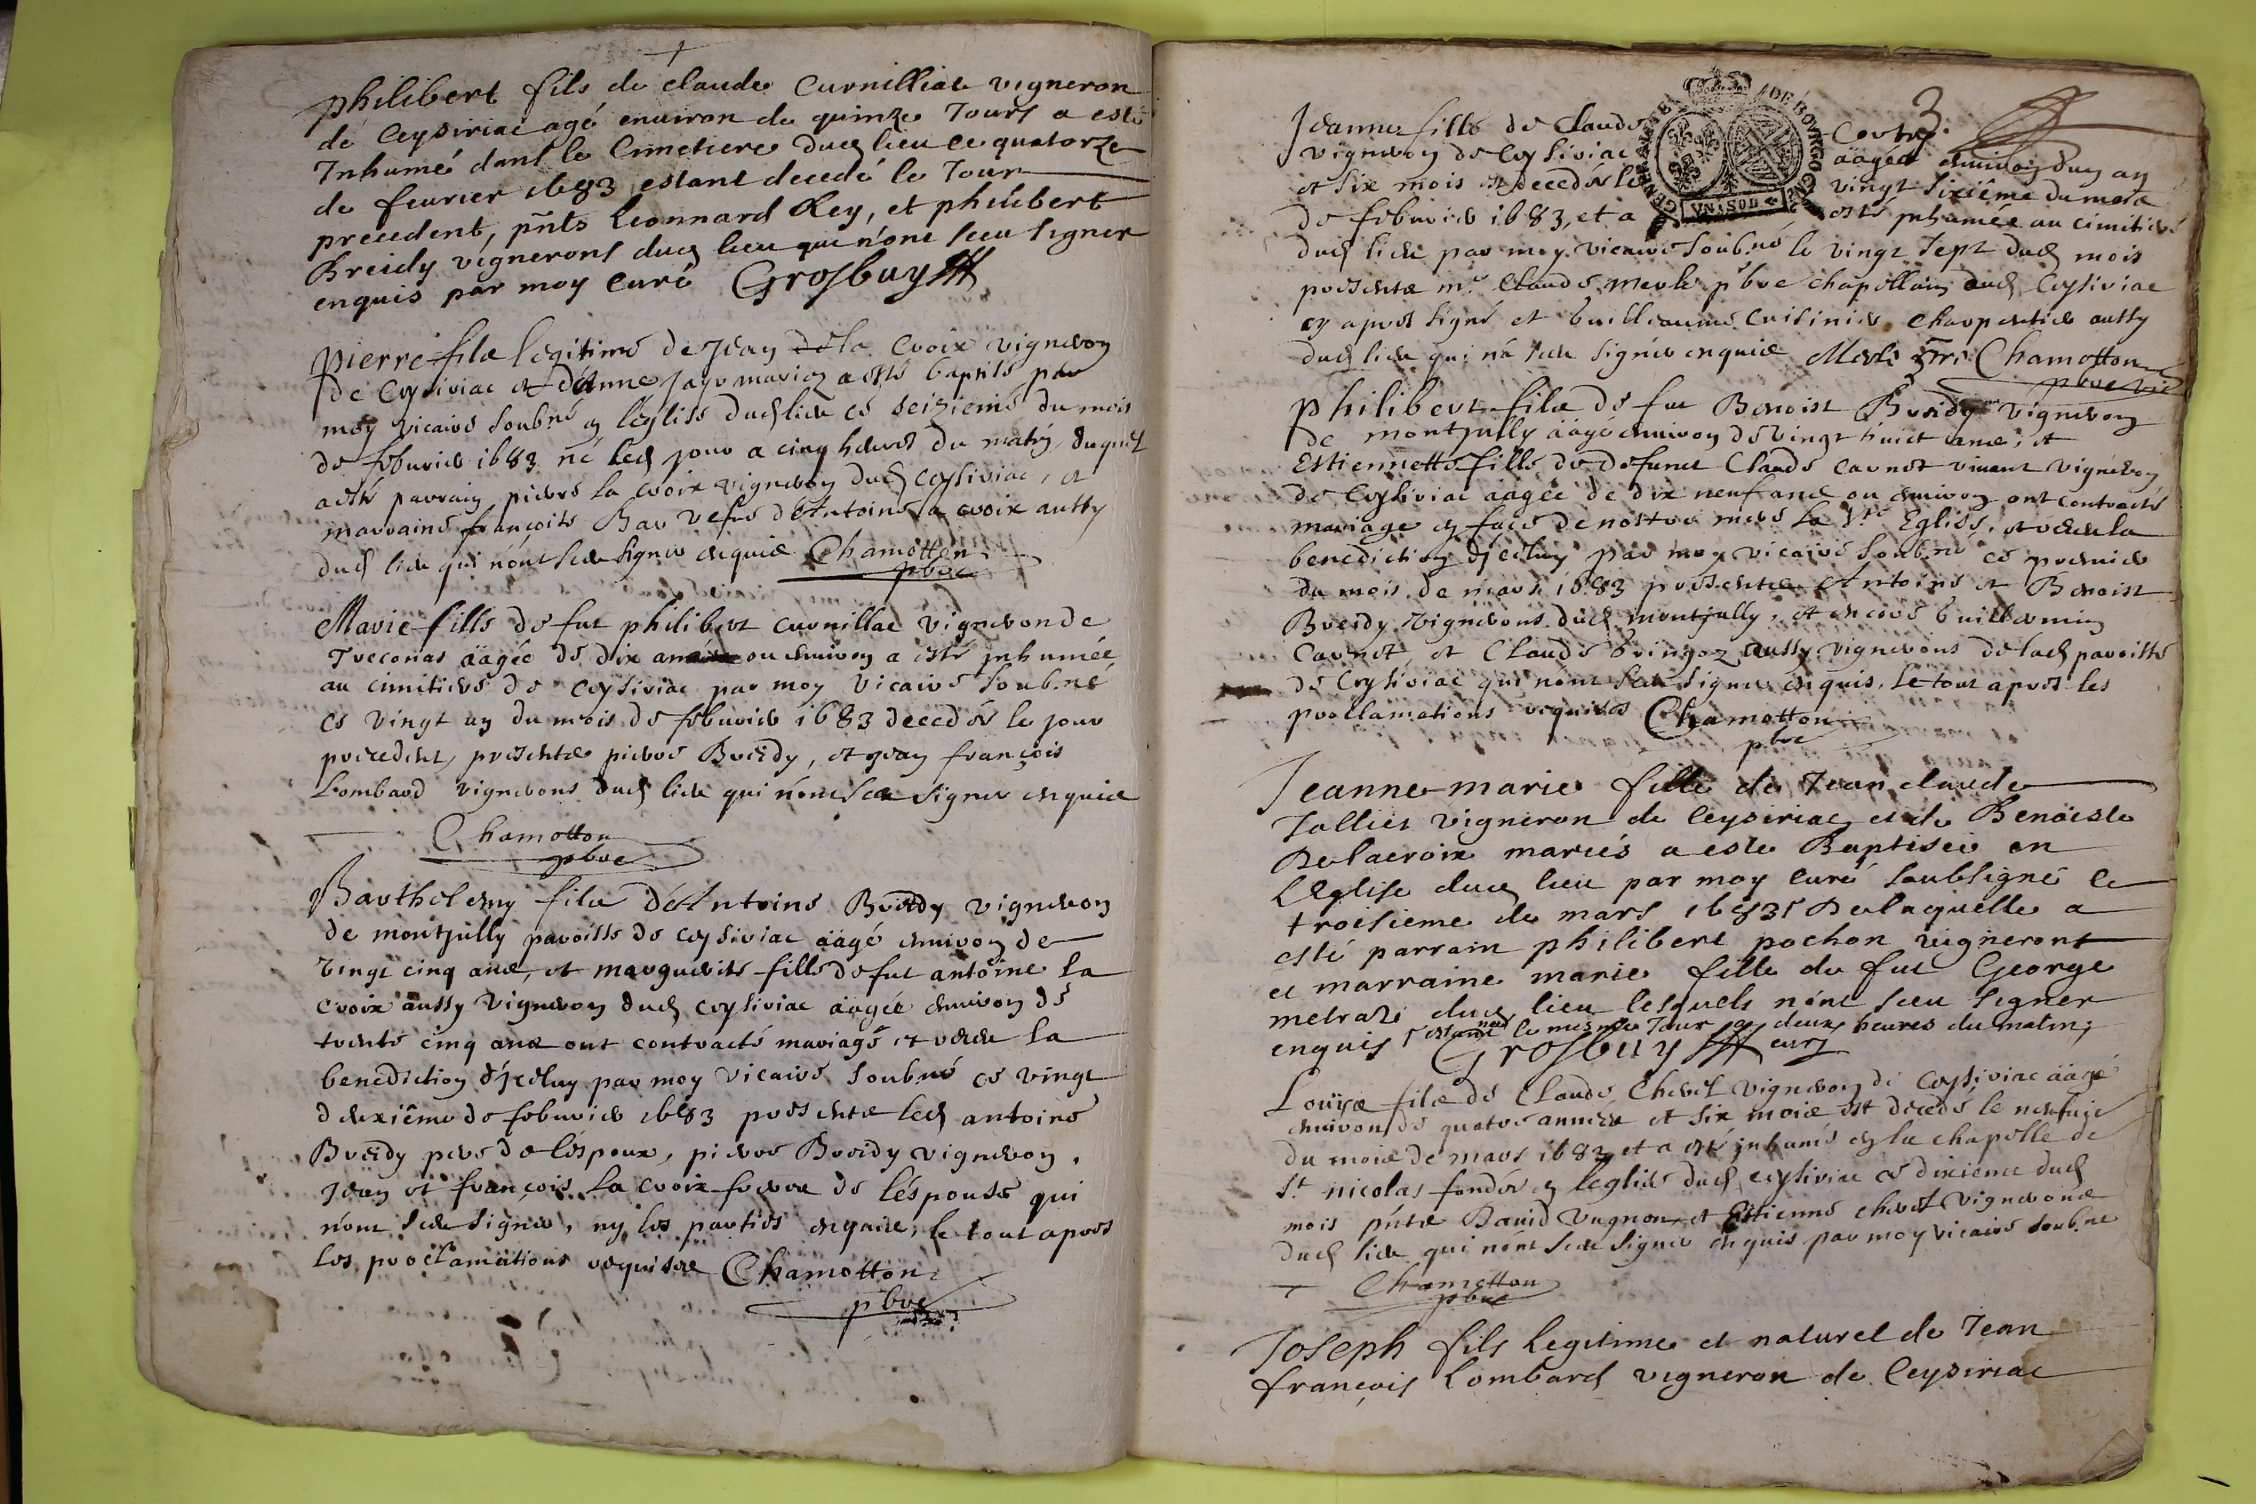 philibert fils de claude Curnilliat vigneron
de Ceysiriac agé environ de quinze Jours a esté
Inhumé dans le Cimetiere dud lieu ce quatorze
de fevrier 1683 estant decedé le Jour
precedent, pñts Leonnard Rey, et philibert
Breidy vignerons dud lieu qui n'ont sceu signer
enquis par moy curé Grosbuy
pierre fils legitime de Jean dela Croix vigneron
de Ceysiriac et d'Anne Jayr mariez a esté baptisé par
moy vicaire soubné en l'eglise dud lieu ce seizieme du mois
de febvrier 1683 né led jour a cinq heures du matin, duquel
a esté parrain pierre la croix vigneron dud Ceysiriac, et
marraine françoise Bar vefve d'Antoine la croix aussy
dud lieu qui n'ont sceu signer enquis Chamotton
pbre
Marie fille de fut philibert curnillat vigneron de
Treconas äagée de dix ans ou environ a esté inhumée
au cimitiere de Ceysiriac par moy vicaire soubné
ce vingt un du mois de febvrier 1683 decedée le jour
precedent, presents pierre Breidy, et jean françois
Lombard vignerons dud lieu qui n'ont sceu signer enquis
Chamotton
pbre
Barthelemy fils d'Antoine Breidy vigneron
de montjully paroisse de ceysiriac äagé environ de
vingt cinq ans, et marguerite fille de fut antoine la
croix aussy vigneron dud ceysiriac äagée environ de
trente cinq ans ont contracté mariage et receu la
benediction d'jceluy par moy vicaire soubné ce vingt
deuxiême de febvrier 1683 presents led antoine
Breidy pere de l'espoux, pierre Breidy vigneron,
Jean et françois la croix freres de l'espouse qui
n'ont sceu signer, ny les parties enquis, le tout apres
les proclamations requises Chamotton
pbre
3
Jeanne fille de Claude Cortey
vigneron de Ceysiriac äagée environ d'un an
et six mois est decedée le vingt sixiéme du mois
de febvrier 1683, et a esté inhumée au cimitiere
dud lieu par moy vicaire soubné le vingt sept dud mois
presents mre Claude Merle pbre chapellain dud Ceysiriac
cy apres signé et Guilleaume Cuisinier charpentier aussy
dud lieu qui n'a sceu signer enquis Merle ptre Chamotton
pbre vic
GENERALITE DE BOVRGOGNE
VN SOL
philibert fils de fut Benoist Breidy vigneron
de montjully äagé environ de vingt huict ans, et
Estiennette fille de defunct Claude Carnot vivant vigneron
de Ceysiriac äagée de dix neuf ans ou environ ont contracté
mariage en face de nostre mere la Ste Eglise, et receu la
benediction d'jceluy par moy vicaire soubné ce premier
du mois de mars 1683 presents Antoine et Benoist
Breidy vignerons dud montjully, et encore Guillermin
Carnot, et Claude Gringoz aussy vignerons de lad paroisse
de Ceysiriac qui n'ont sceu signer enquis, le tout apres les
proclamations requises Chamotton
pbre
Jeanne-marie fille de Jean claude
Jallier vigneron de Ceysiriac et de Benoiste
Delacroix mariés a este Baptisée en
l'eglise dud lieu par moy curé soubsigné ce
troisieme de mars 1683 De laquelle a
esté parrain philibert pochon vigneront
et marraine marie fille de fut George
metraz dud lieu lesquels n'ont sceu signer
enquis estant née le mesme Jour a deux heures du matin;
Grosbuy curé
Louÿs fils de Claude Chevet vigneron de Ceysiriac äagé
environ de quatre années et six mois est decedé le neufvie
du mois de mars 1683 et a esté inhumé en la chapelle de
St nicolas fondée en l'eglise dud ceysiriac ce dixieme dud
mois pñts David Vugnon et Estienne chevet vignerons
dud lieu qui n'ont sceu signer enquis par moy vicaire soubné
Chamotton
pbre
Joseph fils legitime et naturel de Jean
françois Lombard vigneron de Ceysiriac